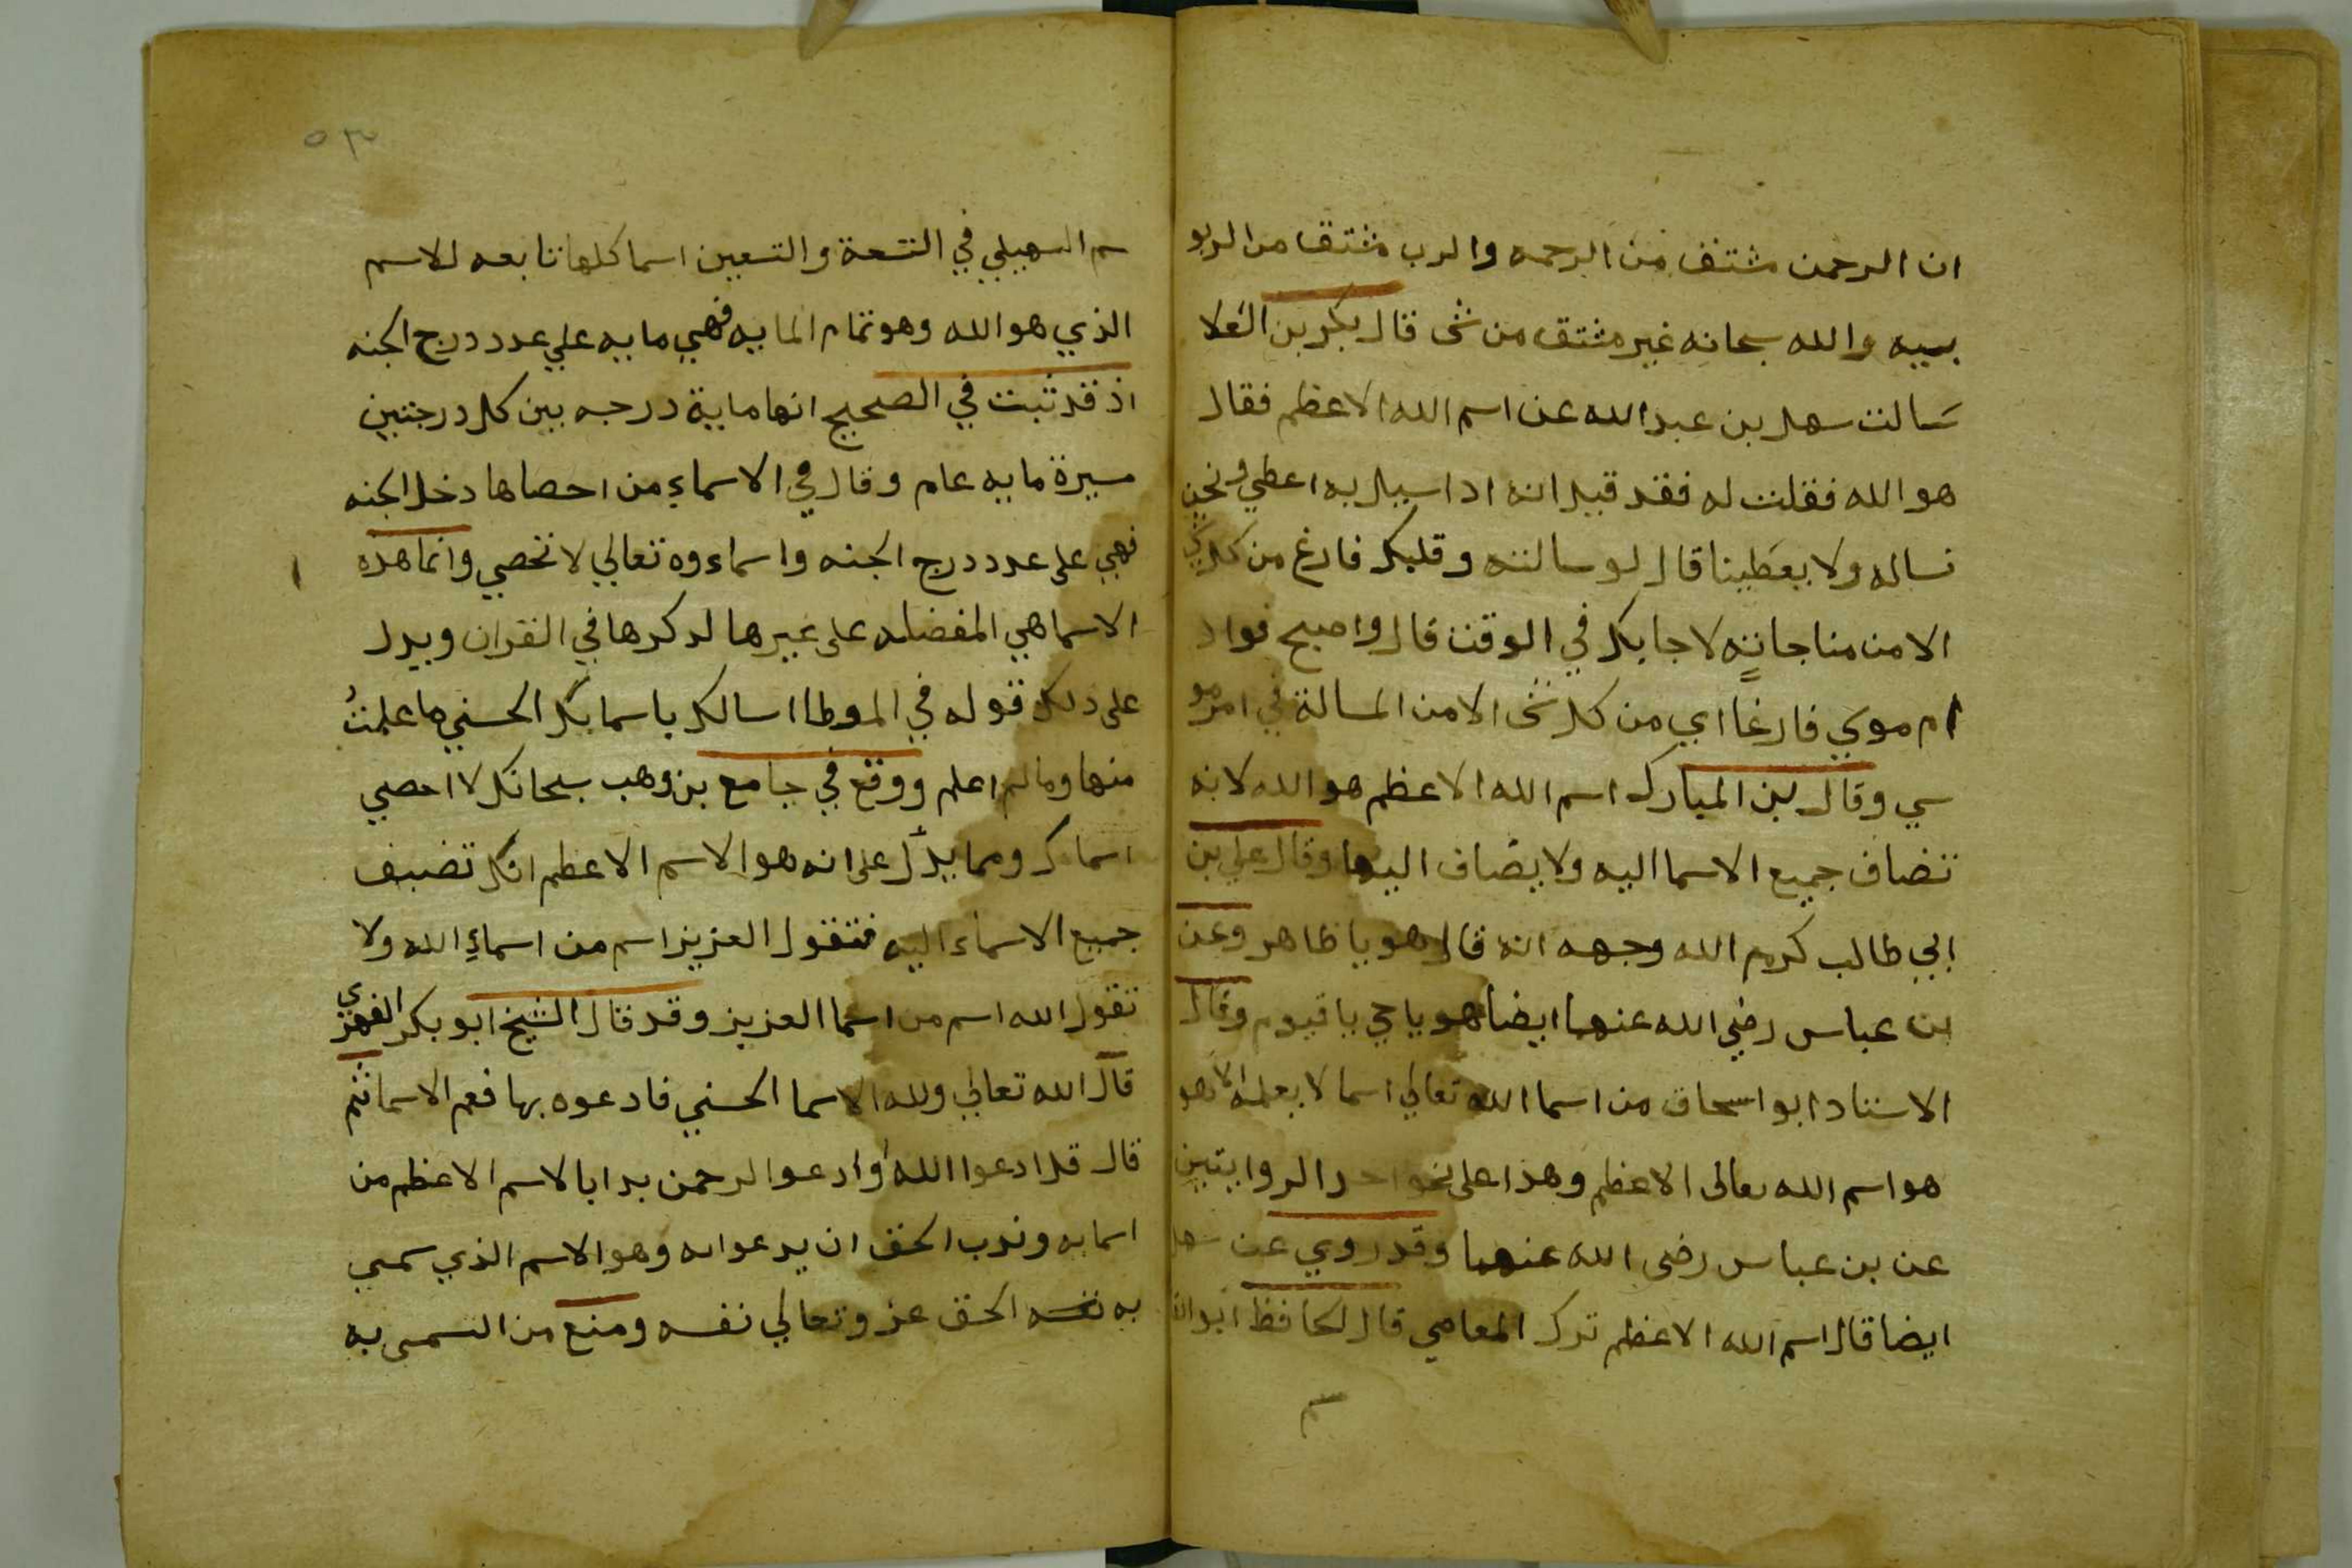 ان الرحمن مشتق من الرحمه والرب مشتق من الربو
بييه والله سبحانه غير مشتق من شى قال بكر بن العلا
سالت سهل بن عبد الله عن اسم الله الاعظم فقال
هو الله فقلت له فقد قيل انه اذا سيل به اعطي ونحن
نساله ولا يعطينا قال لو سالته وقلبك فارغ من كل شى
الا من مناجاته لاجابك في الوقت قال واصبح فواد
ام موسي فارغا اي من كل شى الا من المسالة في امر مو
سي وقال بن المبارك اسم الله الاعظم هو الله لانه
تضاف جميع الاسما اليه ولا يضاف اليها وقال علي بن
ابي طالب كرم الله وجهه انه قال هو يا ظاهر وعن
بن عباس رضي الله عنهما ايضا هو يا حي يا قيوم وقال
الاستاد ابو اسحاق من اسما الله تعالي اسما لا يعلمه الا هو
هو اسم الله تعالى الاعظم وهذا على نحو احد الروايتين
عن بن عباس رضى الله عنهما وقد روي عن سهل
ايضا قال اسم الله الاعظم ترك المعاصي قال الحافظ ابو
٥٣
سم السهيلي في التسعة والتسعين اسما كلها تابعه للاسم
الذي هو الله وهو تمام المايه فهي مايه علي عدد درج الجنه
اذ قد ثبت في الصحيح انها ماية درجه بين كل درجتين
مسيرة مايه عام وقال في الاسماء من احصاها دخل الجنه
فهي على عدد درج الجنه واسماءوه تعالي لا تحصي وانما هذه
الاسما هي المفضله على غيرها لذكرها في القران ويدل
على ذلك قوله في الموطا اسالك باسمايك الحسني ما علمت
منها وما لم اعلم ووقع في جامع بن وهب سبحانك لا احصي
اسماك ومما يدل على انه هو الاسم الاعظم انك تضيف
جميع الاسماء اليه فتقول العزيز اسم من اسماء الله ولا
تقول الله اسم من اسما العزيز وقد قال الشيخ ابو بكر الفهري
قال الله تعالي ولله الاسما الحسني فادعوه بها فعم الاسما ثم
قال قل ادعوا الله او ادعوا الرحمن بدا بالاسم الاعظم من
اسمايه وندب الحق ان يدعوا به وهو الاسم الذي سمى
به نفسه الحق عز وتعالي نفسه ومنع من التسمى به